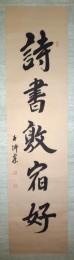 詩書敦宿好